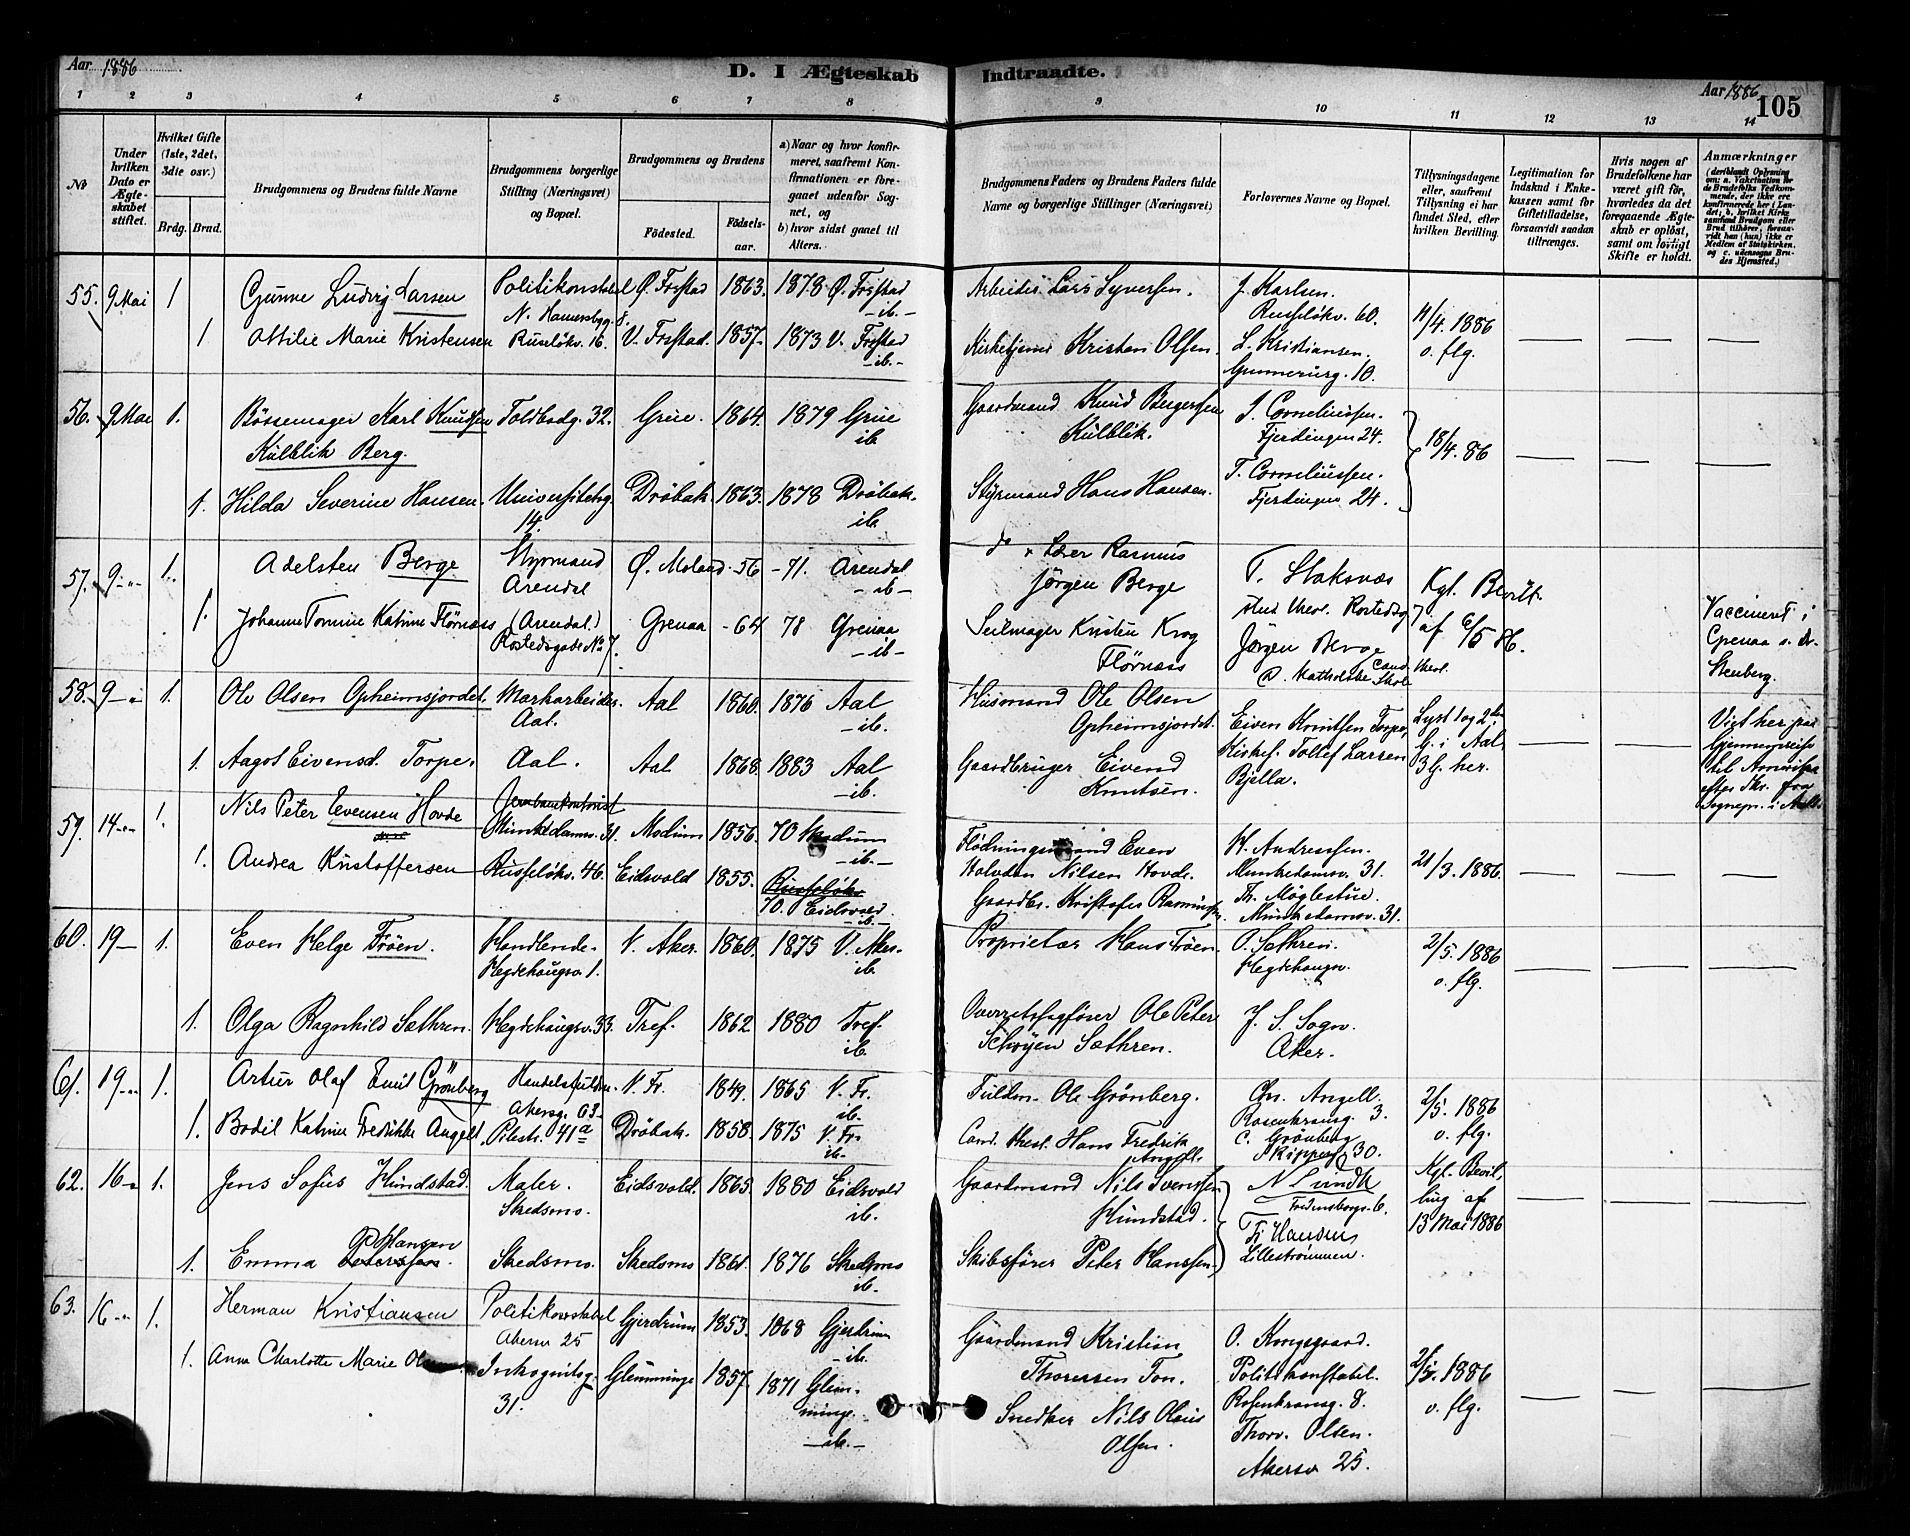 Aar 1886
D. I Ægteskab Indtraadte.
Aar 1886
105
1 2 3 4 5 6 7 8 9 10 11 12 13 14
No
Under hvilken Dato er Ægteskabet stiftet.
Hvilket Gifte (1ste, 2det, 3die osv.)
Brdg. Brud.
Brudgommens og Brudens fulde Navne
Brudgommens borgerlige Stilling (Næringsvei) og Bopæl.
Brudgommens og Brudens
Fødested.
Fødselsaar.
a) Naar og hvor konfirmeret, saafremt Konfirmationen er foregaaet udenfor Sognet, og
b) hvor sidst gaaet til Alters.
Brudgommens Faders og Brudens Faders fulde Navne og borgerlige Stillinger (Næringsvei)
Forlovernes Navne og Bopæl.
Tillysningsdagene eller, saafremt Tillysning ei har fundet Sted, efter hvilken Bevilling.
Legitimation for Indskud i Enkekassen samt for Giftetilladelse, forsaavidt saadan tiltrænges.
Hvis nogen af Brudefolkene har været gift før, hvorledes da det foregaaende Ægteskab er opløst, samt om lovligt Skifte er holdt.
Anmærkninger
55. 9 Mai 1 Gunne Ludvig Larsen Politikonstabel Ø. Frestad 1863. 1878 Ø. Frestad
N. Hamersbg. 8. -ib.-
1 Ottilie Marie Kristensen Ruseløkv. 16. V. Frestad. 1857. 1873 V. Frestad
-ib.-
Arbeider Lars Syversen. J. Karlsen.
Russeløkv. 60. 11/4. 1886
Kirketjener Kristen Olsen. L. Kristiansen. o. flg.
Gunnerusg. 10.
56. 9 Mai 1. Bössemager Karl Knudsen Toldbodg. 32. Grue. 1864. 1879 Grue
Kulblik Berg. ib.
1. Hilda Severine Hansen. Universitetsg. Dröbak 1863. 1878 Dröbak.
14. ib.
Gaardmand Knud Bergersen J. Corneliussen.
Kulblik. Fjerdingen 24. 18/4. 86
Styrmand Hans Hansen. T. Corneliussen.
Fjerdingen 24.
57. 9-"- 1. Adelsten Berge. Styrmand Ø. Moland. -56 -71. Arendal
Arendal -ib-
1. Johanne Tomine Katrine Flörnæss (Arendal.) Grenaa -64 78 Grenaa
Rostedsgade No 7. -ib-
Lærer Rasmus T. Staksnæs Kgl. Bevilt.
Jørgen Berge stud theol. Rostedsg 7 af 6/5 86.
Seilmager Kristen Krog Jørgen Berge
Flørnæss Cand. theol.
Vaccineret i
Grenaa
Stenberg.
58. 9-" 1. Ole Olsen Opheimsjordet. Markarbeider. Aal 1860. 1876 Aal
Aal. -ib.
1. Aagot Eivensd. Torpe. Aal. Aal 1868. 1883 Aal
-ib.
Husmand Ole Olsen
Opheimsjordet. Eiven Knutsen Torpe, Lyst 1 og 2den
G. i Aal,
Gaardbruger Eivend Tollef Larsen 3 G. her.
Knutsen. Bjella.
Viet her paa
Gjennemreise
til Amerika
59. 14-"- 1. Nils Peter Evensen Hovde
Munkedamsv. 31. Modum 1856. 70 Modum
-ib.-
1. Andrea Kristoffersen Russeløkv. 46. Eidsvold 1855. Russeløkv
70. Eidsvold.
-ib.-
Flødningsmand Even K. Andressen.
Halvdan Nilsen Hovde. Munkedamsv. 31. 21/3. 1886.
Gaardbr. Kristofer Rasmussen. Th. Möglestue.
Munkedamsv. 31.
60. 19- 1. Even Helge Frøen. Handlende. V. Aker. 1860. 1875 V. Aker.
Hegdehaugsv. 1. ib.
1. Olga Ragnhild Sæthren. Hegdehaugsv. 33. Tref. 1862. 1880 Tref.
ib.
Proprietær Hans Frøen. O. Sæthren. 2/5. 1886
Hegdehaugsv. o. flg.
Overretssagfører Ole Peter J. S. Sogn.
Schøyen Sæthren. Aker.
61. 19-"- 1. Artur Olaf Emil Grönberg V. Fr. 1849. 1865 V. Fr.
Akersg. 63. ib.
1. Bodil Katrine Fredrikke Angell. Pilestr. 41a Dröbak. 1858. 1875 V. Fr.
ib.
Fuldm. Ole Grönberg. Chr. Angell. 2/5. 1886
Rosenkransg. 3. o. flg.
Cand. theol. Hans Fredrik C. Grönberg
Angell. Skipperg. 30.
62. 16-" 1. Jens Sofus Hundstad. Maler. Eidsvold. 1865. 1880 Eidsvold
Skedsmo. ib.
1. Emma Petersen. Hansen Skedsmo. Skedsmo 1861. 1876 Skedsmo
ib.
Gaardmand Nils Svensen N Lundh Kgl. Bevil-
Hundstad. Fredensborgv. 6. ling af
Fr. Hansen 13 Mai 1886
Skibsfører Peter Hanssen. Lillestrømmen.
63. 16-"- 1. Herman Kristiansen Politikonstabel Gjerdrum 1853. 1868 Gjerdrum
Akersv 25 -ib.
1. Anna Charlotte Marie Inkognitog. Glemminge 1857. 1871 Glem-
31. minge.
-ib.-
Gaardmand Kristian O. Kongsgaard.
Thoressen Ton. Politikonstabel. 2/5. 1886
Snedker Nils Olaus Rosenkransg. 8. o. flg.
Olsen. Thorv. Olsen.
Akersv 25.